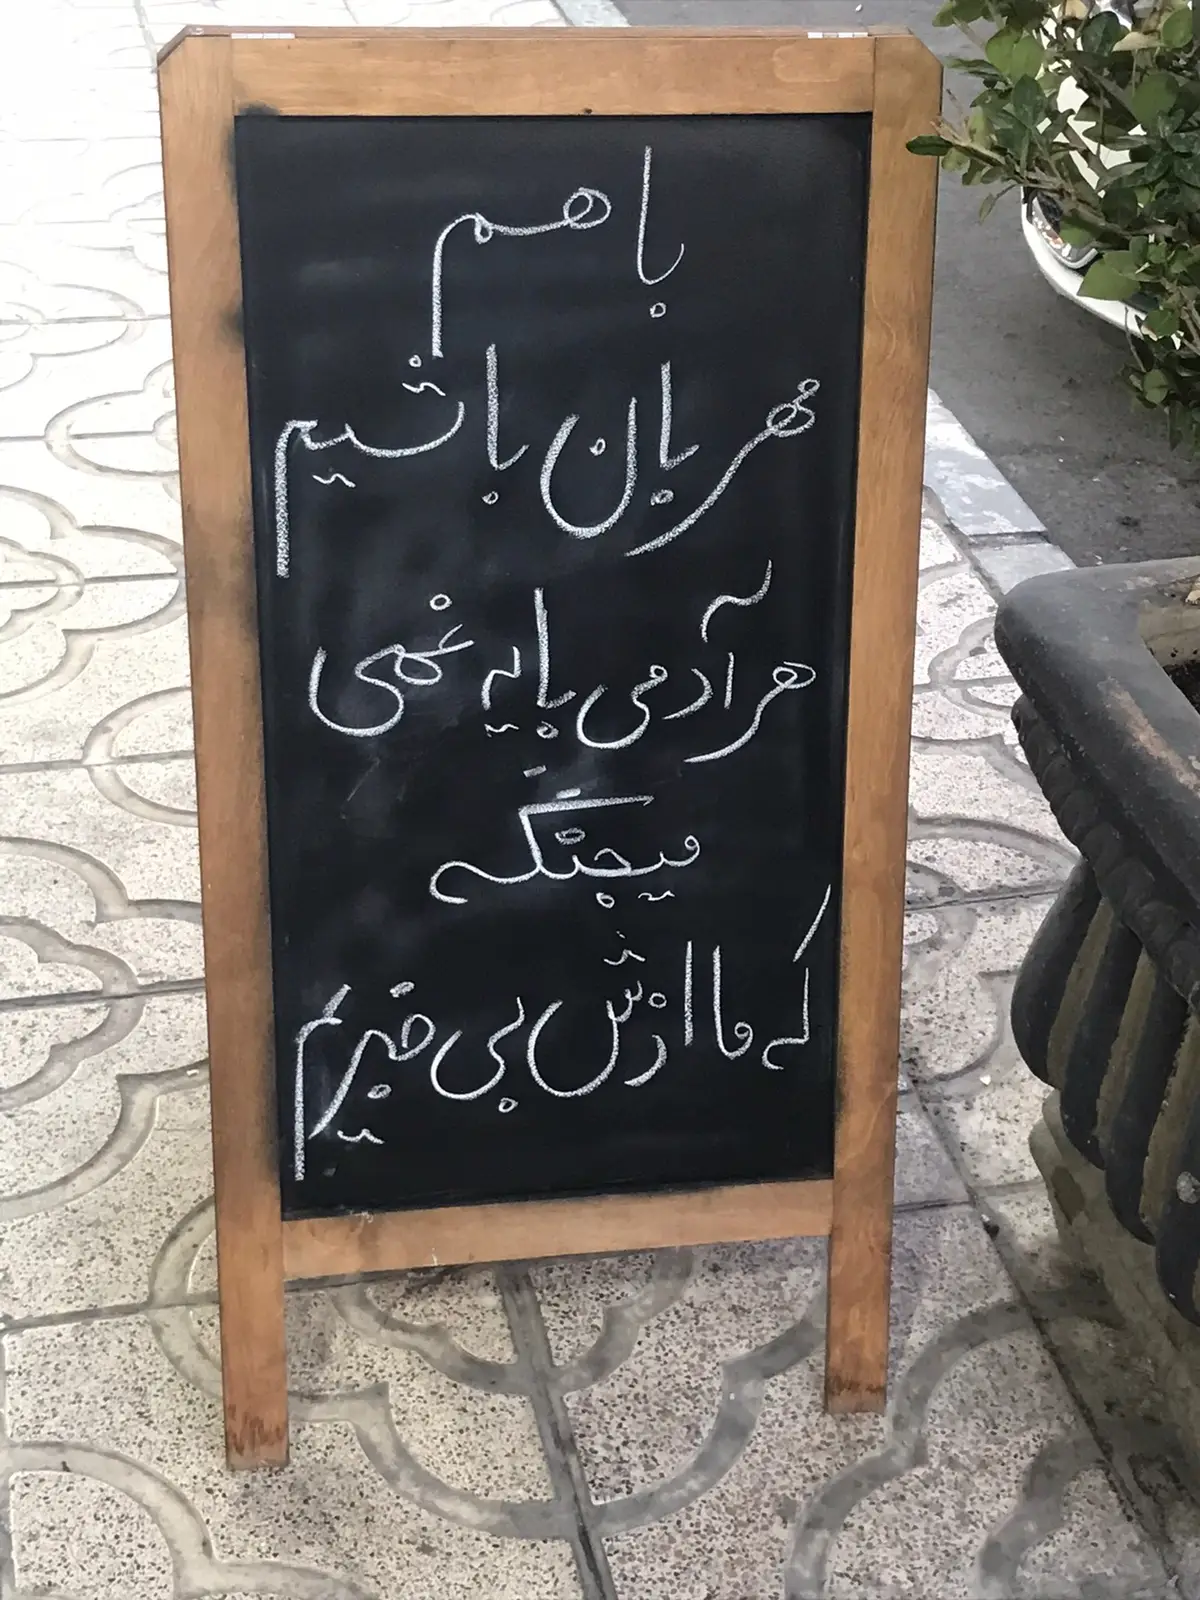 با هم
مهربان باشیم
هر آدمی با یه غمی
میجنگه
که ما ازش بی خبریم